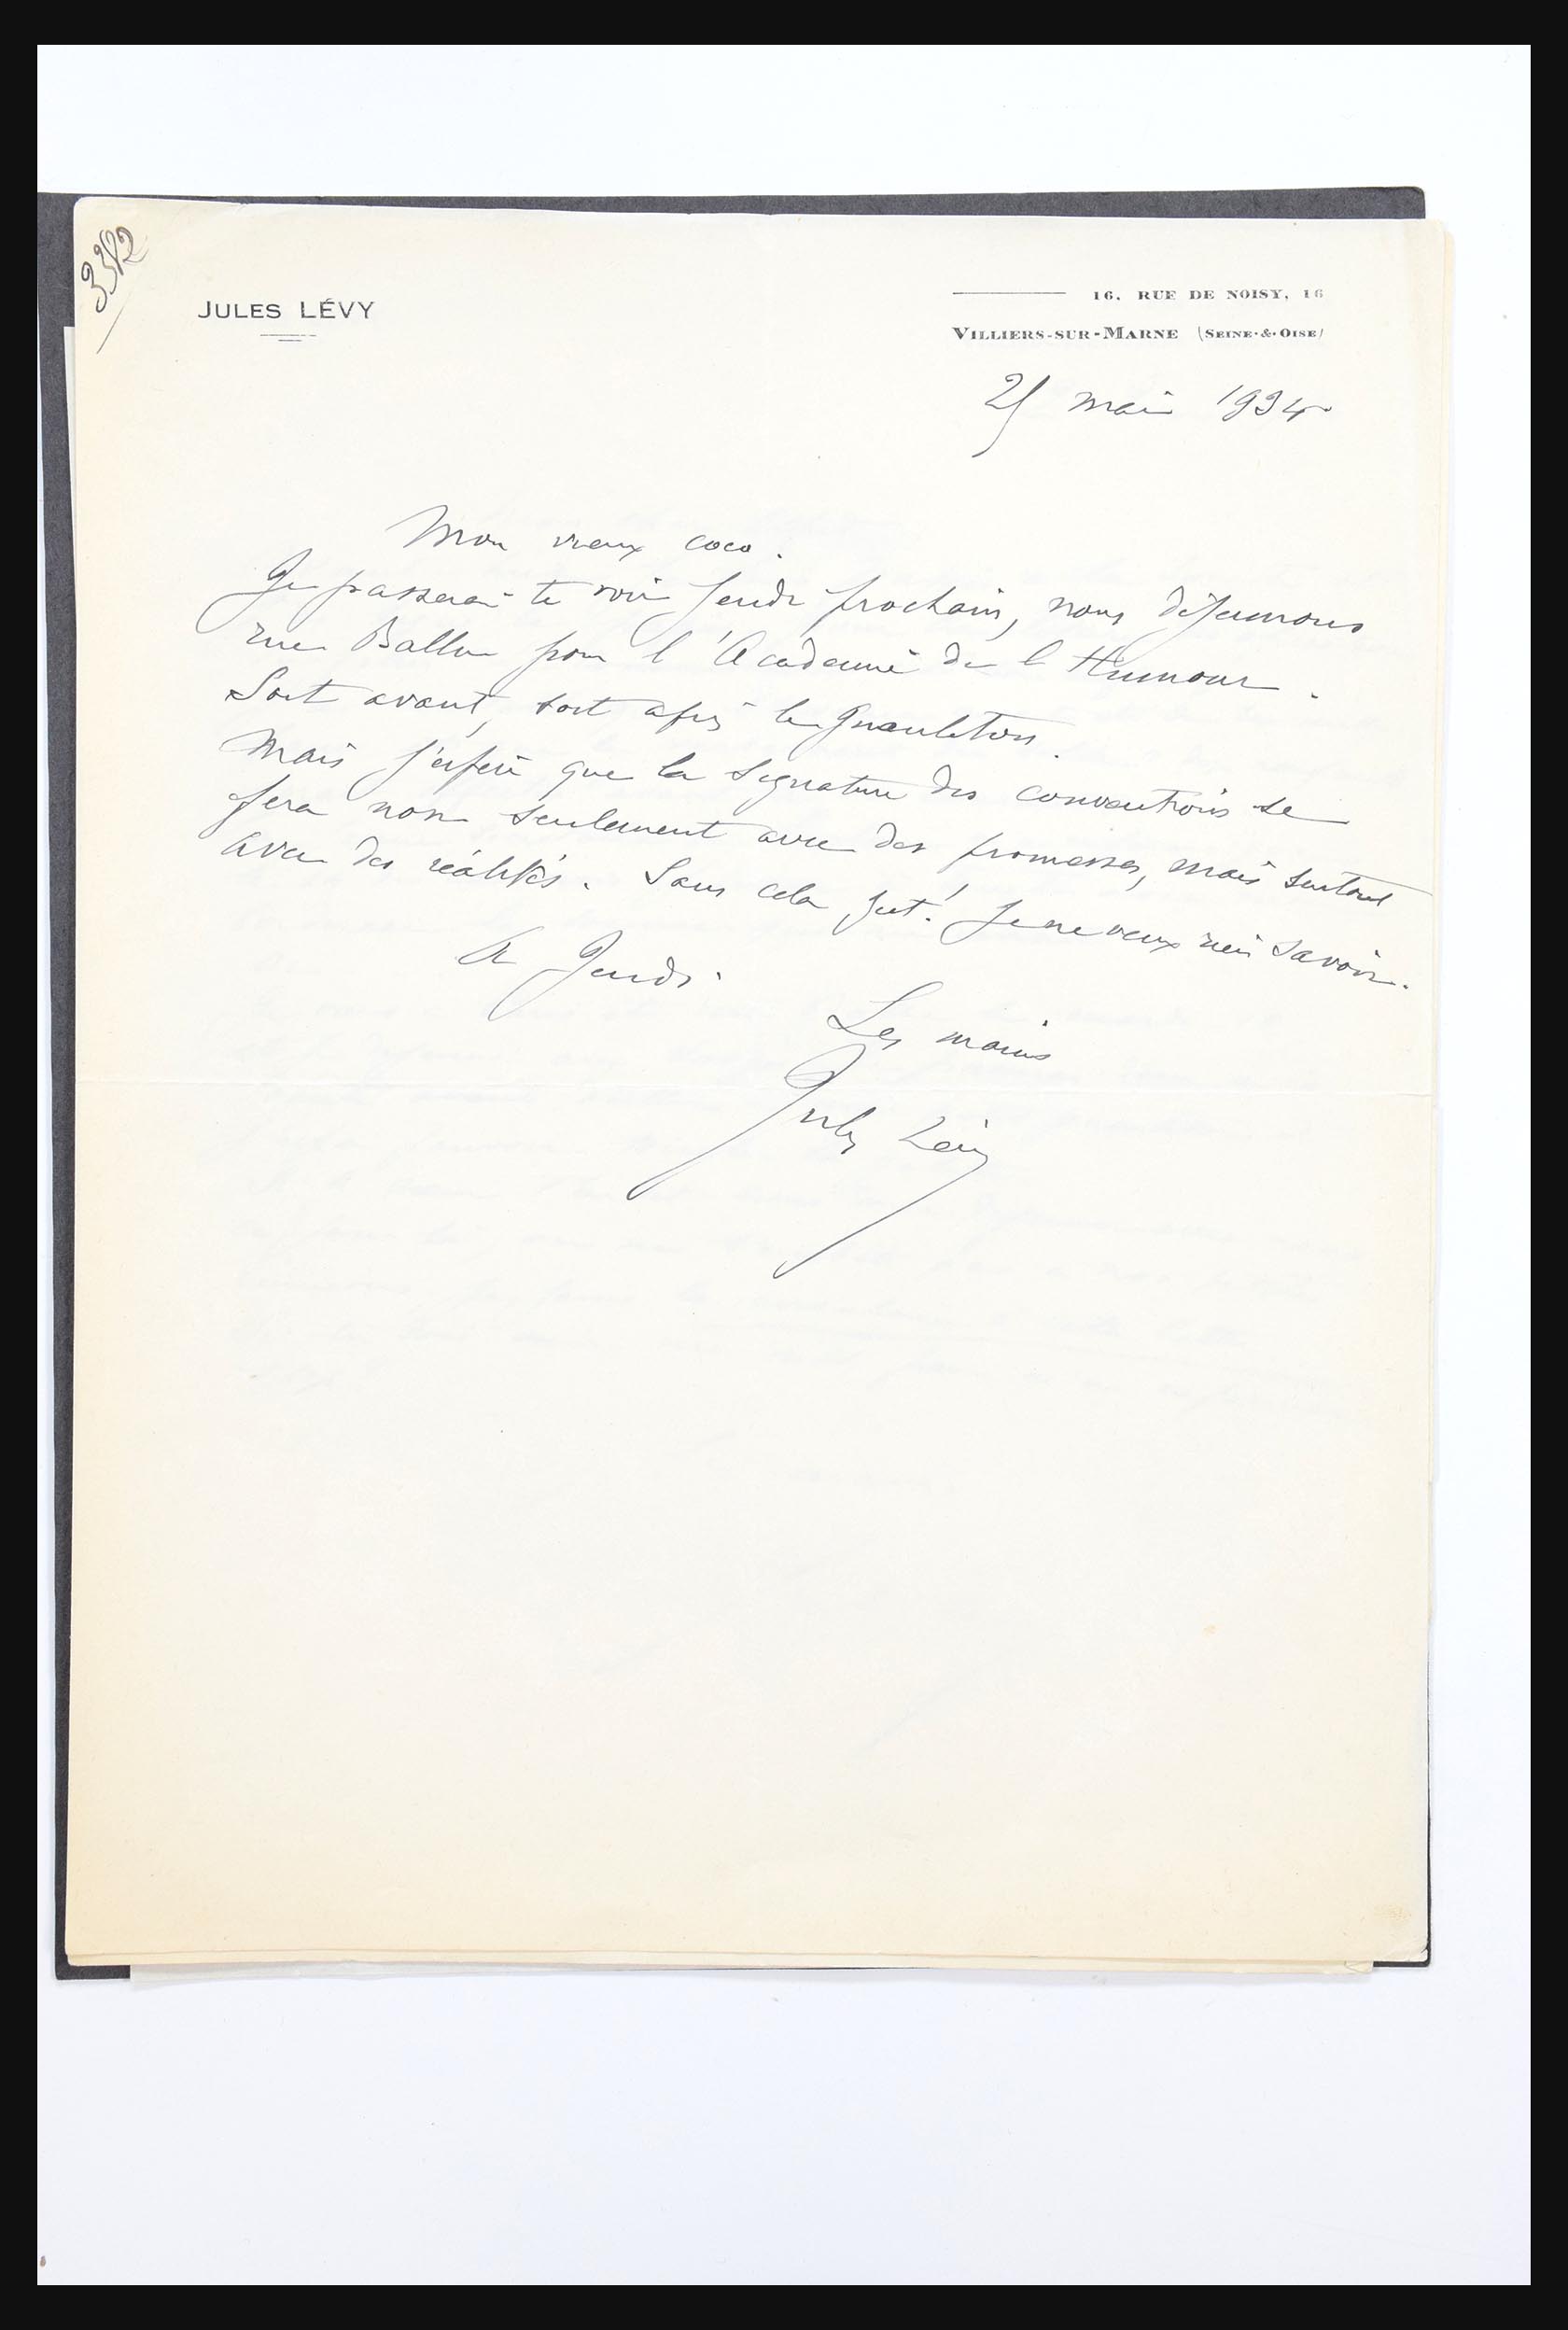 3312
JULES LÉVY
16, RUE DE NOISY, 16
VILLIERS-SUR-MARNE (SEINE-&-OISE)
25 mai 1934
Mon vieux coco.
Je passerai te voir jeudi prochain, nous déjeunons
rue Ballu pour l'Académie de l'Humour.
Soit avant, soit après le gueuleton.
Mais j'espère que la signature des conventions se
fera non seulement avec des promesses, mais surtout
avec des réalités. Sans cela zut! Je ne veux rien savoir.
A Jeudi.
Les mains
Jules Lévy